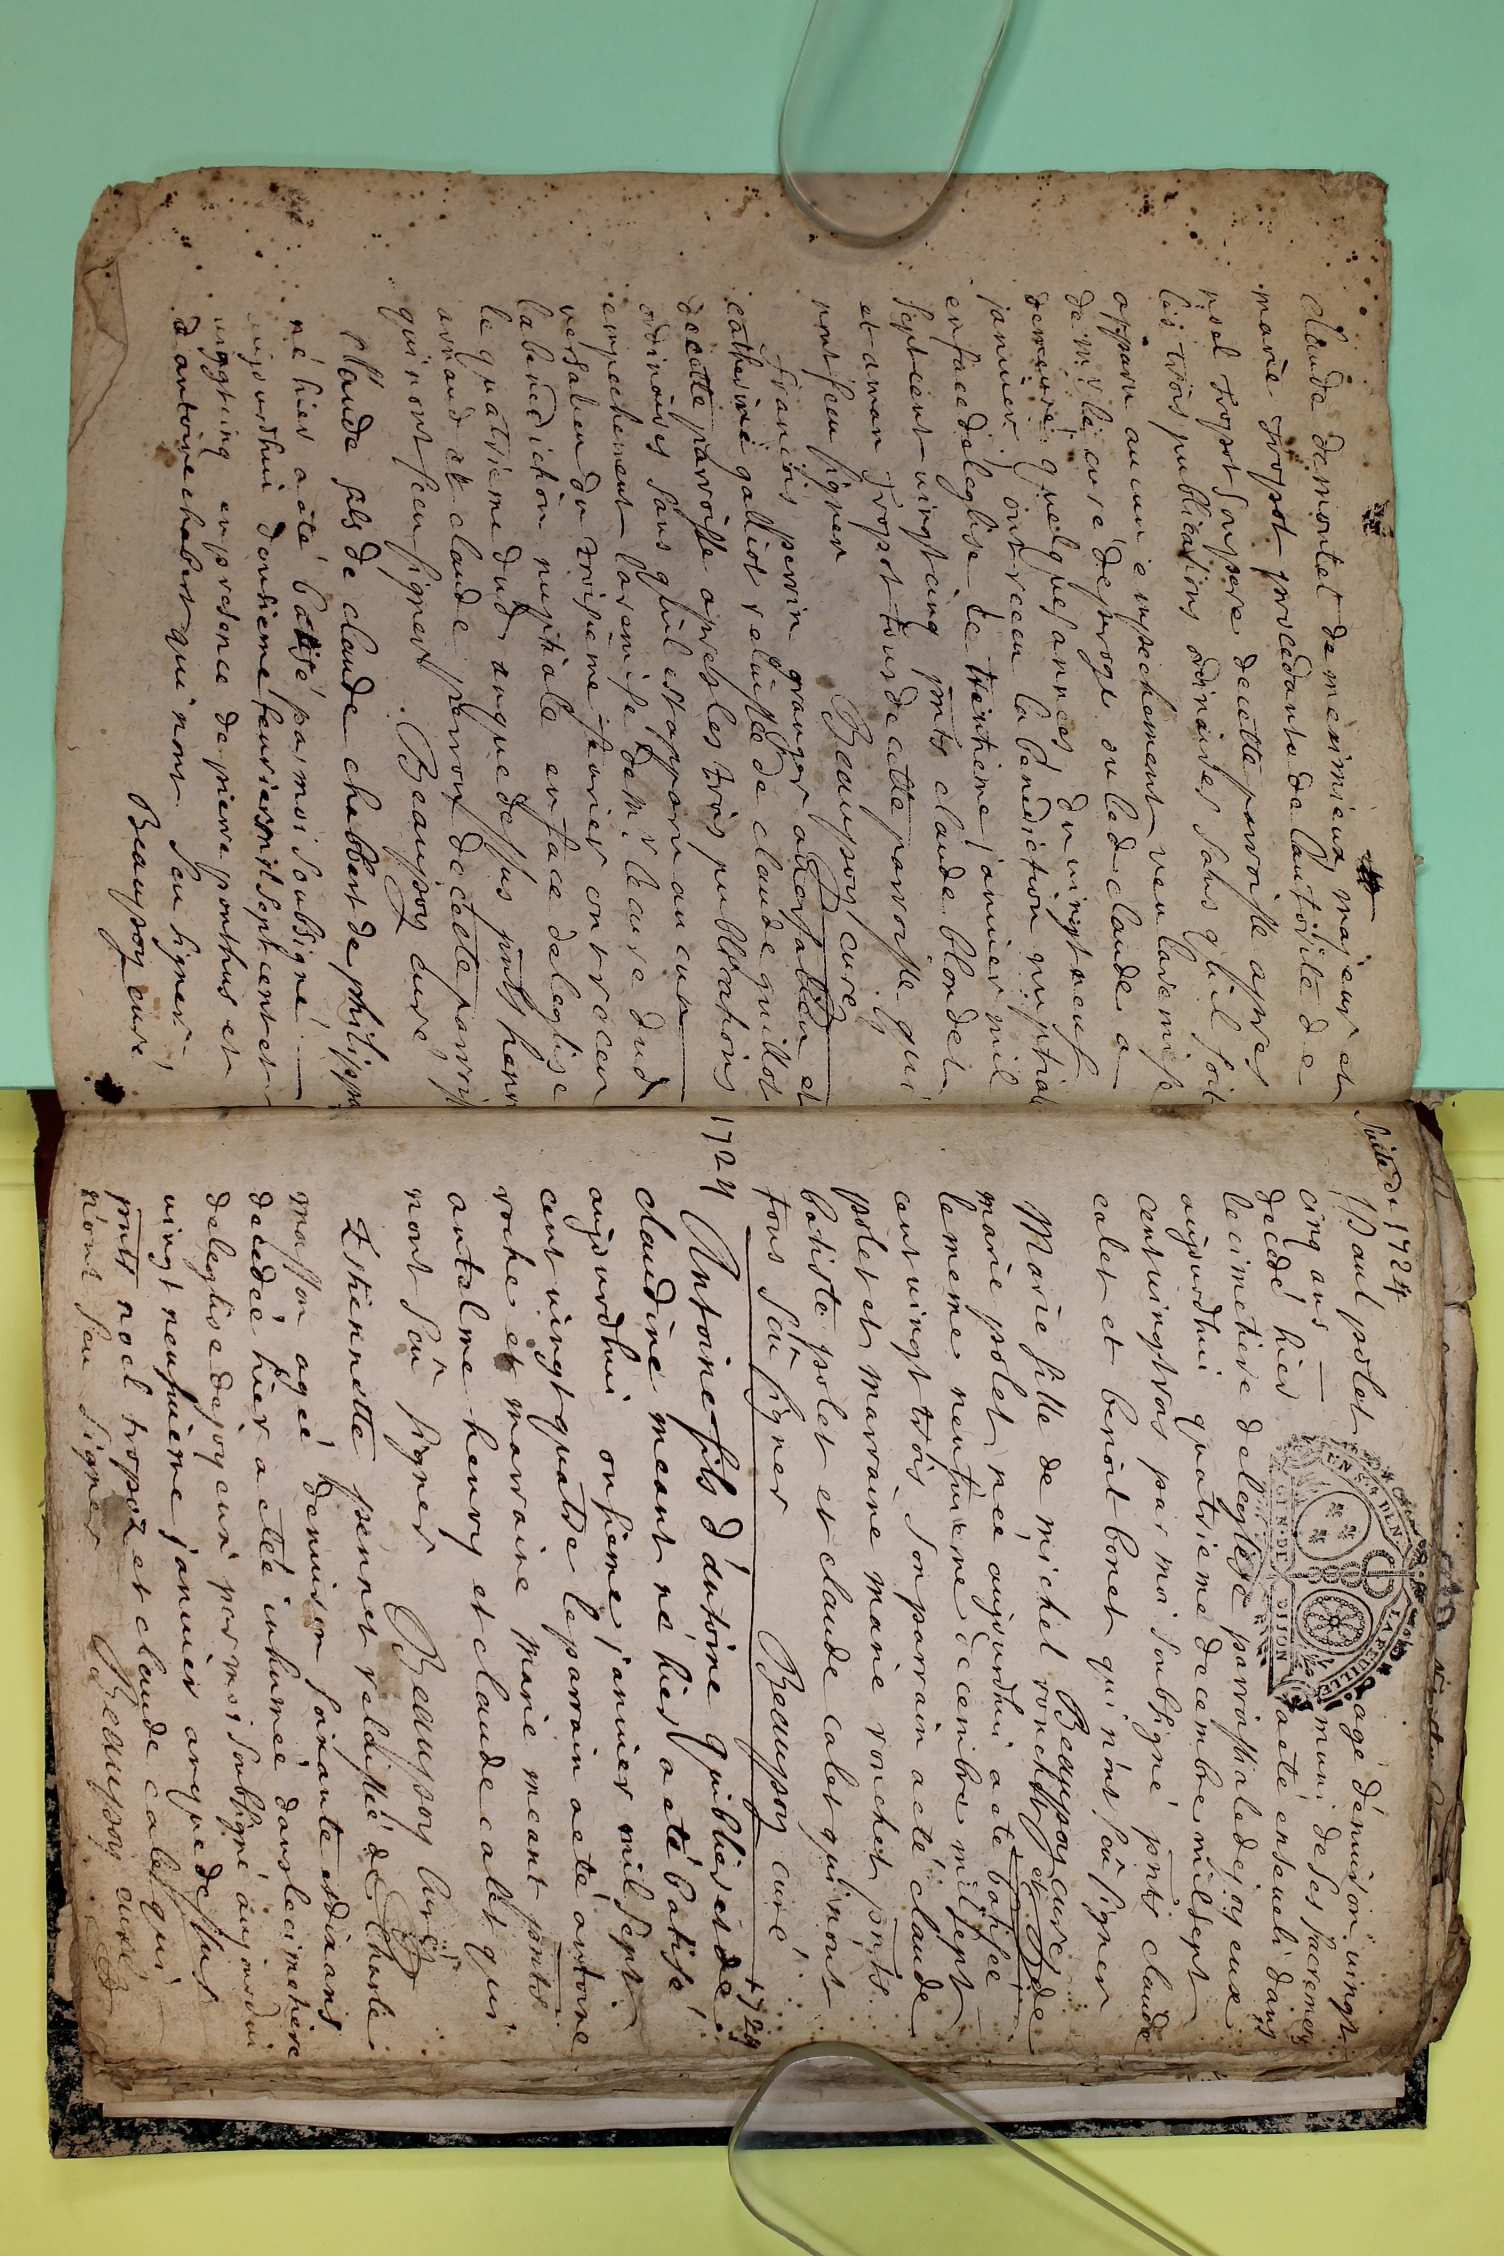 Claude demontet de meximieux majeur et
marie tropot procedante de lautorité de
noel tropot son pere de cette parroisse apres
les trois publications ordinaires sans quil soit
apparu aucun empechement veu la remise
de mr le cure de peroge ou led claude a
demeuré quelques annees du vingt neuf
janvier ont receu la benediction nuptiale
en face de leglise le trentieme janvier mil
sept cent vingt cinq pnts claude blondet
et aman tropot tous de cette parroisse qui
nont sceu signer Beaupoy curé
francois perrin granger a versalieu et
catherine galliot relaissée de claude guillot
de cette parroisse apres les trois publications
ordinaires sans quil est apparu aucun
empechement la remise de mr le curé dud
versalieu du troisieme fevrier ont receu
la benediction nuptiale en face de leglise
le quatrieme dud que dessus pnts henry
arnaud et claude perroux de cette parroisse
qui nont sceu signer. Beaupoy curé
Claude fils de claude chabbert de philippe
né hier a eté batisé par moi soubsigné
aujourdhui douzieme fevrier mil sept cent et
vingt cinq en presence de pierre ponthus et
dantoine chabert qui nont seu signer
Beaupoy curé
Suite du 1724
Paul polet agé denviron vingt
cinq ans muni de ses sacremens
decedé hier a eté enseveli dans
le cimetiere de leglise parroissiale de joyeux
aujourdhui quatrieme decembre mil sept
cent vingt trois par moi soubsigné pnts claude
calet et benoit bonet qui nont sçû signer
Beaupoy curé
Marie fille de michel ronchet et de
marie polet née aujourdhui a eté batisee
le meme neufvieme decembre mil sept
cent vingt trois son parrain a eté claude
polet et marraine marie ronchet pnts
batiste polet et claude calet qui nont
tous sçû signer Beaupoy curé
1724 1724
Antoine fils dantoine quiblier et de
claudine meant né hier a eté batisé
aujourdhui onzieme janvier mil sept
cent vingt quatre le parrain a eté antoine
roche et marraine marie meant pnts
antelme henry et claude calet qui
nont sçû signer Beaupoy curé
Estiennette penet relaissée de charle
masson agée denviron soixante et dix ans
decedée hier a eté inhumée dans le cimetiere
de leglise de joyeux par moi soubsigné aujourdui
vingt neufvieme janvier an que dessus
pnts noel tropoz et claude calet qui
nont seu signer Beaupoy curé
GEN. DE DIJON